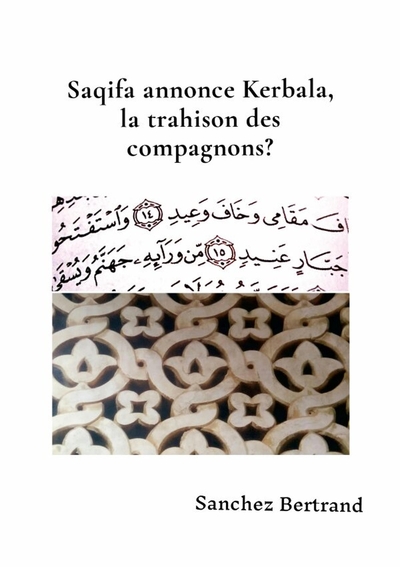 Saqifa annonce Kerbala,
la trahison des
compagnons?
ـافَ مَقَامِى وَخَافَ وَعِيدِ ١٤ وَٱسْتَفْتَحُو
جَبَّارٍ عَنِيدٍ ١٥ مِّن وَرَآئِهِۦ جَهَنَّمُ وَيُسْقَى
Sanchez Bertrand